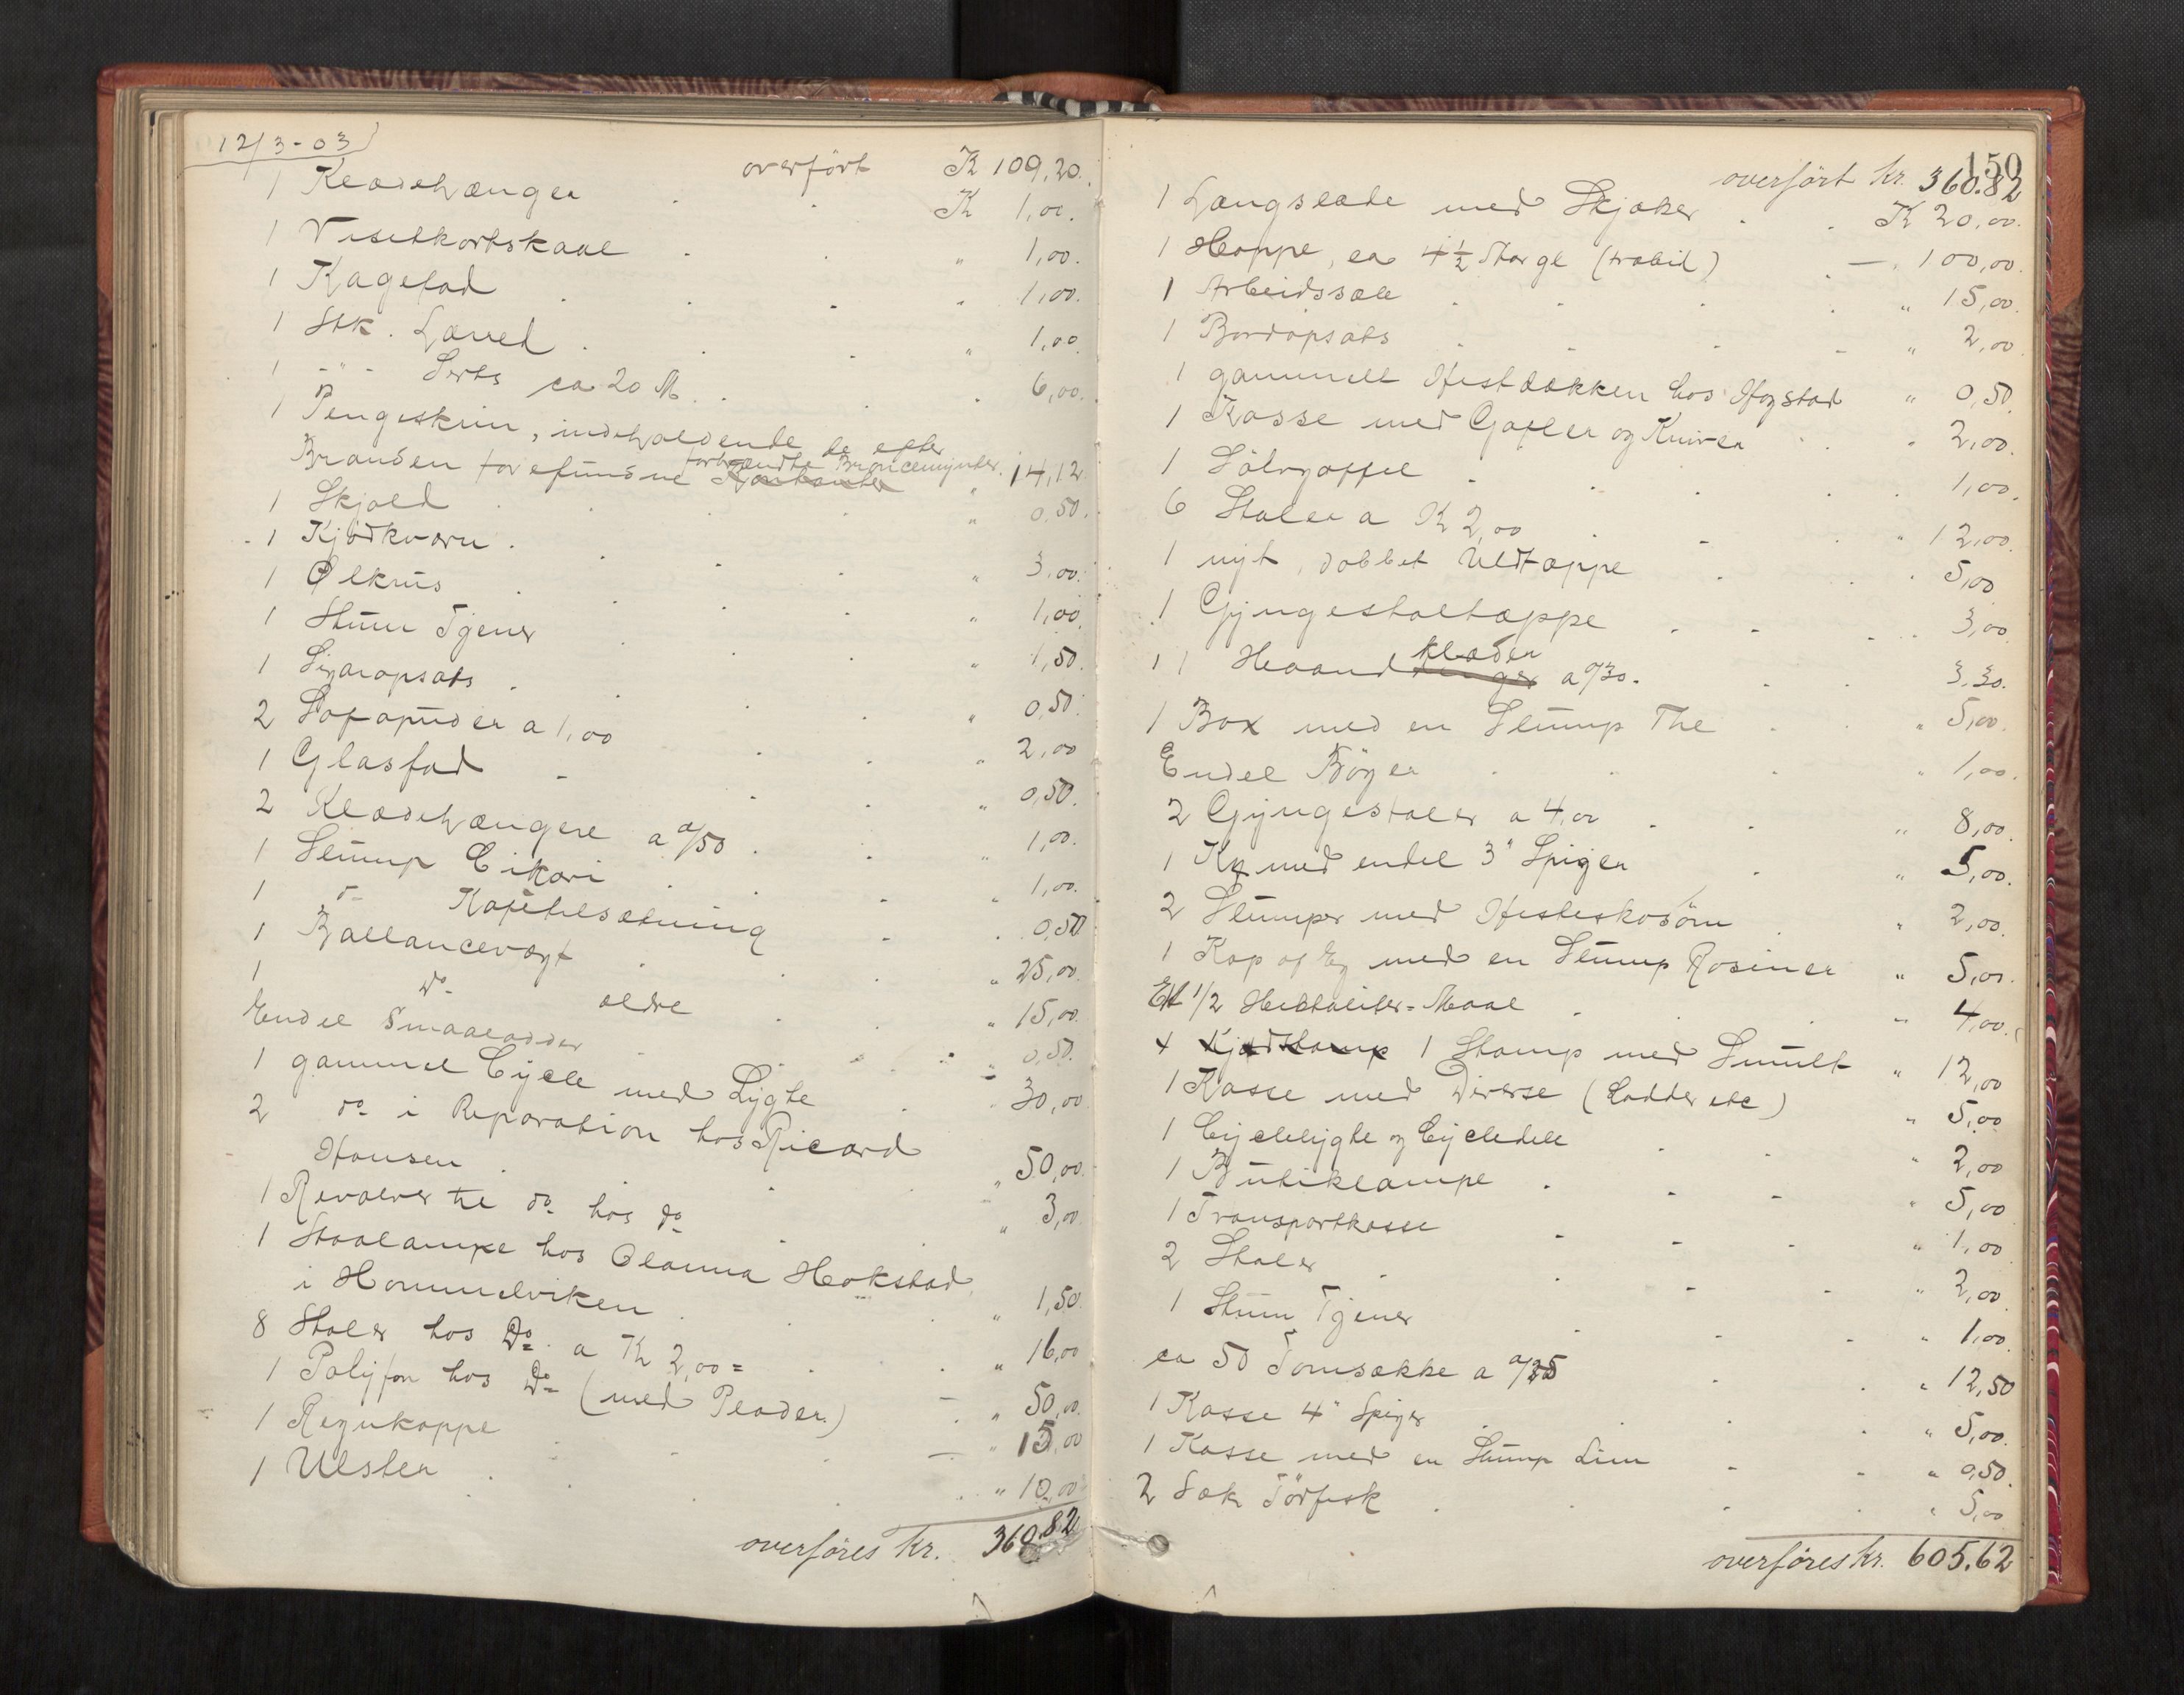 12/3-03
overført K 109,20.
1 Klædehænger K 1,00.
1 Visitkortskaal " 1,00.
1 Kagefad " 1,00.
1 Stk. Lærred " 1,00.
1 -"- Serts ca 20 M. 6,00.
1 Pengeskrin, indeholdende de efter
Branden forefundne forbrændte Broncemynter. " 14,12
1 Skjold " 0,50.
1 Kjødkværn " 3,00.
1 Ølkrus " 1,00.
1 Stum Tjener " 1,50.
1 Sigaropsats " 0,50.
2 Sofapuder a 1,00 " 2,00
1 Glasfad " 0,50.
2 Klædehængere a 0/50 " 1,00.
1 Slump Cikori " 1,00.
1 do Kaffetilsætning 0,50
1 Ballancevægt " 25,00.
1 do ældre " 15,00.
Endel Smaalodder " 0,50.
1 gammel Cycle med Lygte 30,00
2 do i Reparation hos Ricard
Hansen " 50,00.
1 Revolver til do hos do " 3,00
1 Staalampe hos Olanna Hokstad
i Hommelviken " 1,50.
8 Stoler hos Do a K 2,00 = " 16,00
1 Polyfon hos Do (med Plader) " 50,00.
1 Regnkappe " 15,00
1 Ulster " 10,00
overføres kr. 360.82
150
overført kr. 360.82
1 Langslæde med Skjæker K 20,00.
1 Hoppe, ca 4½ (trabil) — 100,00.
1 Arbeidssæle " 15,00.
1 Bordopsats " 2,00
1 gammelt Hestdækken hos Hogstad " 0,50.
1 Kasse med Gafler og Kniver " 2,00.
1 Sølvgaffel 1,00.
6 Stoler a K 2,00 " 12,00.
1 nyt, dobbet Uldtæppe " 5,00
1 Gyngestoltæppe 3,00.
11 Haandklæder a 0/30. 3,30.
1 Box med en Slump The " 5,00.
Endel Bøger " 1,00.
2 Gyngestoler a 4,00 " 8,00.
1 Kg med endel 3" Spiger " 5,00.
2 Slumper med Hesteskosøm " 2,00.
1 Kop af Eg med en Slump Rosiner " 5,00.
Et 1/2 Hectoliter-Maal " 4,00.
1 Stamp med Smult " 12,00
1 Kasse med Diverse (Lodder etc) " 5,00
1 Cyclelygte og Cycledele " 2,00
1 Butiklampe " 5,00
1 Transportkasse " 1,00
2 Stoler " 2,00.
1 Stum Tjener " 1,00
ca 50 Tomsække a 0/25 " 12,50
1 Kasse 4" Spiger " 5,00.
1 Kasse med en Slump Lim " 0,50.
2 Sæk Tørfisk " 5,00
overføres kr. 605.62